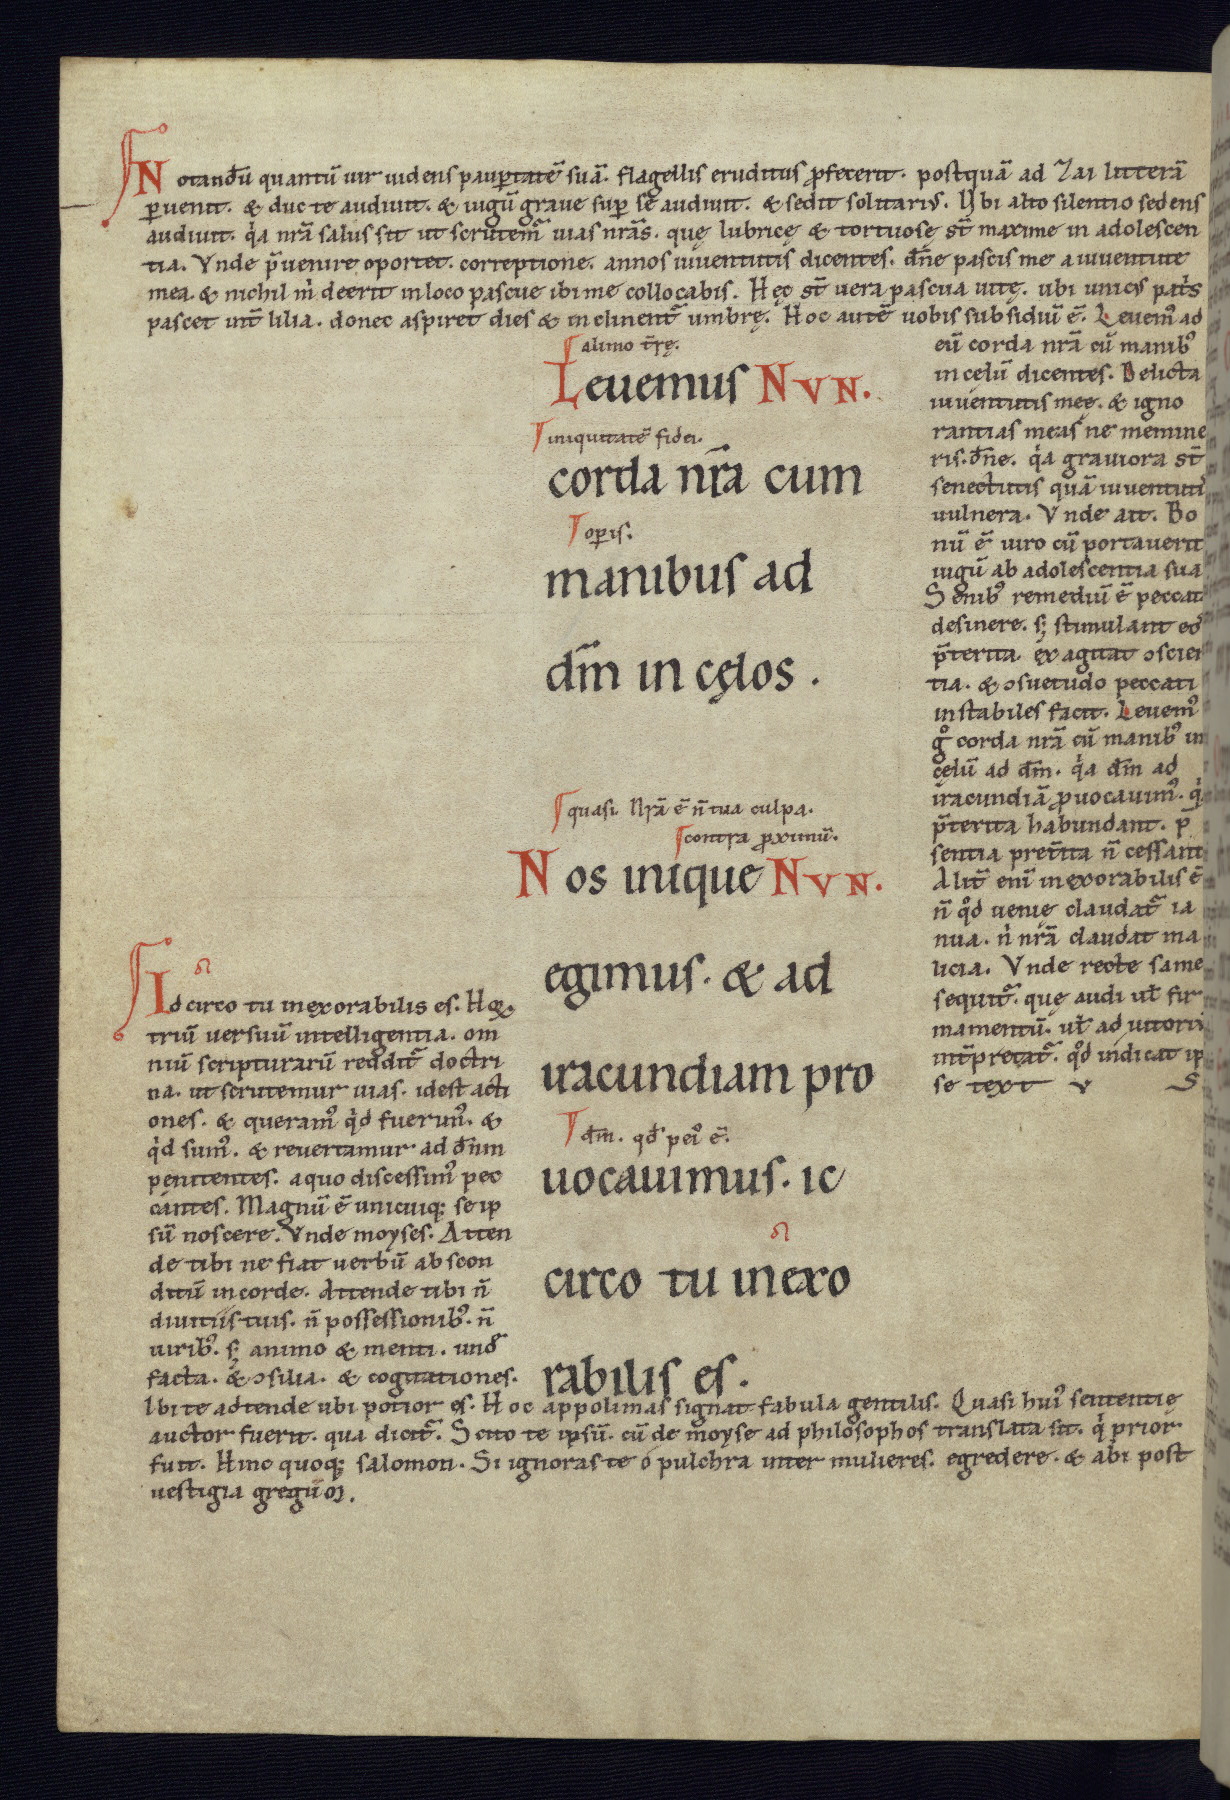 Notandū quantū uir uidens paup̱tatē suā. flagellis eruditus ꝓfecerit. postquā ad Zai litterā
ꝑuenit. & duc te audiuit. & iugū graue sup̱ sē audiuit. & sedit solitariꝰ. Ubi alto silentio sedens
audiuit. q̇a nr̄a salus sit ut scrutem̄ uias nr̄as. quę lubricę & tortuose st̄ maxime in adolescen
tia. Vnde p̄uenire oportet. correptione. annos iuuentutis dicentes. dn̄e pascis me a iuuentute
mea. & nichil ṁ deerit in loco pascue ibi me collocabis. Hęc st̄ uera pascua uitę. ubi unicꝰ pat̄s
pascet int̄ lilia. donec aspiret dies & inclinent̄ umbrę. Hoc autē uobis subsidiū ē. Leuemꝰ ad
eū corda nr̄a cū manibꝰ
in celū dicentes. Delicta
iuuentutis meę. & igno
rantias meas ne memine
ris. dn̄e. q̇a grauiora st̄
senectutis quā iuuentuti
uulnera. Vnde ait. Bo
nū ē uiro cū portauerit
iugū ab adolescentia sua
Senibꝰ remediū ē peccat
desinere. sꝫ stimulant eoꝰ
p̄terita. exagitat ↄscien
tia. & ↄsuetudo peccati
instabiles facit. Leuemꝰ
gͦ corda nr̄a cū manibꝰ in
cęlū ad dm̄. q̇a dm̄ ad
iracundiā ꝓuocauimꝰ. q̇
p̄terita habundant. p̄
sentia pret̄ita n̄ cessant
Alit̄ enī inexorabilis ē
n̄ qd̄ uenię claudat̄ ia
nua. ṅ nr̄a claudat ma
licia. Vnde recte same
sequit̄. quę audi ul̄ fir
mamentū. ul̄ ad iutorii
int̄pretat̄. qd̄ indicat ip
se text v S
a limo t̄rę.
Leuemus NVN.
iniquitatē fidei.
corda nr̄a cum
oꝑis.
manibus ad
dm̄ in cęlos.
quasi. Nr̄a ē n̄ tua culpa.
contra ꝓximū.
Nos inique NVN.
egimus. & ad
iracundiam pro
dm̄. qd̄ peiꝰ ē.
uocauimus. ic
circo tu inexo
rabilis es.
Idcirco tu inexorabilis es. Hęc
triū uersuū intelligentia. om
niū scripturarū reddit̄ doctri
na. ut scrutemur uias. idest acti
ones. & queramꝰ q̇d fuerimꝰ. &
q̇d sumꝰ. & reuertamur ad dn̄m
penitentes. a quo discessimꝰ pec
cantes. Magnū ē unicuiqꝫ se ip
sū noscere. Vnde moyses. Atten
de tibi ne fiat uerbū abscon
ditū in corde. Attende tibi n̄
diuitiis tuis. n̄ possessionibꝰ. n̄
uiribꝰ. sꝫ animo & menti. und̄
facta. & ↄsilia. & cogitationes.
Ibi te adtende ubi potior es. Hoc appolinias signat fabula gentilis. Quasi huiꝰ sententię
auctor fuerit. qua dicit̄. Scito te ipsū. cū de moyse ad philosophos translata sit. q̇ prior
fuit. Hinc quoqꝫ salomon. Si ignoras te o pulchra inter mulieres. egredere. & abi post
uestigia gregūꝝ.